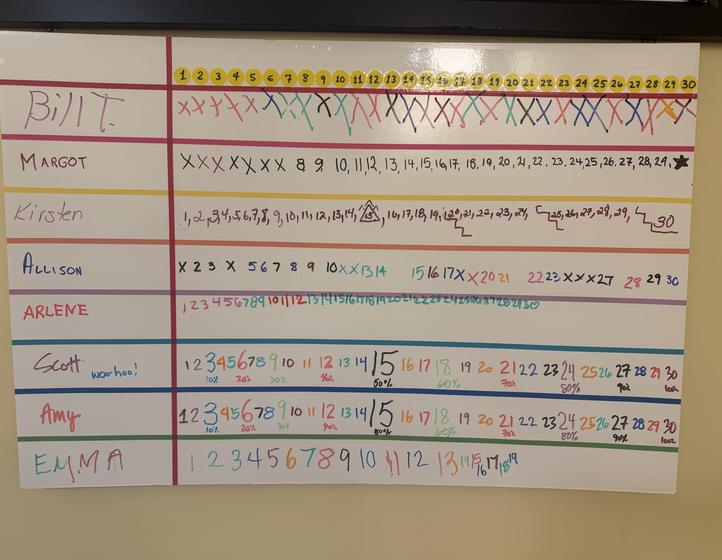 1 2 3 4 5 6 7 8 9 10 11 12 13 14 15 16 17 18 19 20 21 22 23 24 25 26 27 28 29 30
Bill T. X X X X X X X X X X X X X X X X X X X X X X X X X X X X X X
MARGOT X X X X X X X 8 9 10, 11, 12, 13, 14, 15, 16, 17, 18, 19, 20, 21, 22, 23, 24, 25, 26, 27, 28, 29, ★
Kirsten 1, 2, 3, 4, 5, 6, 7, 8, 9, 10, 11, 12, 13, 14, 15, 16, 17, 18, 19, 20, 21, 22, 23, 24, 25, 26, 27, 28, 29, 30
ALLISON X 2 3 X 5 6 7 8 9 10 X X 13 14 15 16 17 X X 20 21 22 23 X X X 27 28 29 30
ARLENE 1 2 3 4 5 6 7 8 9 10 11 12 13 14 15 16 17 18 19 20 21 22 23 24 25 26 27 28 29 30
Scott woo-hoo! 1 2 3 4 5 6 7 8 9 10 11 12 13 14 15 16 17 18 19 20 21 22 23 24 25 26 27 28 29 30
10% 20% 30% 40% 50% 60% 70% 80% 90% 100%
Amy 1 2 3 4 5 6 7 8 9 10 11 12 13 14 15 16 17 18 19 20 21 22 23 24 25 26 27 28 29 30
10% 20% 30% 40% 60% 70% 80% 90% 100%
EMMA 1 2 3 4 5 6 7 8 9 10 11 12 13 14 15 16 17 18 19